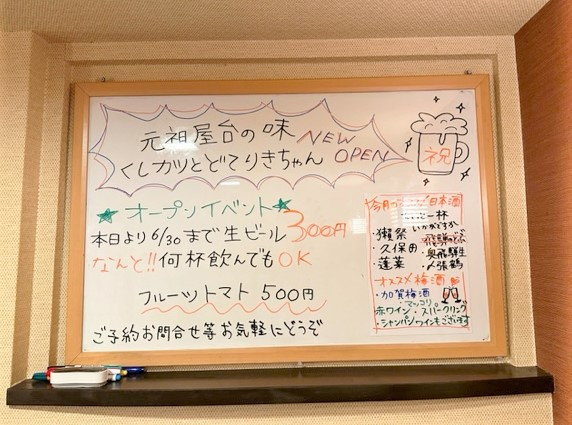 元祖屋台の味 NEW
くしカツとどてりきちゃん OPEN
祝
オープンイベント
本日より6/30まで生ビール300円
なんと!!何杯飲んでもOK
フルーツトマト 500円
ご予約お問合せ等お気軽にどうぞ
日本酒
一杯
いかがですか
・獺祭
・久保田 ・奥飛騨
・蓬莱 ・〆張鶴
オススメ梅酒
・加賀梅酒
・マッコリ
赤ワイン・スパークリング
・シャンパンワインもございます